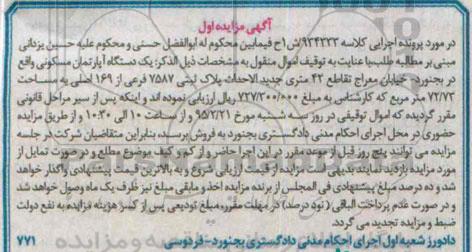 آگهی مزایده اول
در مورد پرونده اجرایی کلاسه ۹۳۴۲۳۳/ش۱ح فیمابین محکوم له ابوالفضل حسنی و محکوم علیه حسین یزدانی
مبنی بر مطالبه طلب با عنایت به توقیف اموال منقول به مشخصات ذیل الذکر: یک دستگاه آپارتمان مسکونی واقع
در بجنورد - خیابان معراج تقاطع ۴۲ متری جدید الاحداث پلاک ثبتی ۷۵۸۷ فرعی از ۱۶۹ اصلی به مساحت
۷۲/۷۳ متر مربع که کارشناس به مبلغ ۷۲۷/۳۰۰/۰۰۰ ریال ارزیابی نموده اند و اینکه پس از سیر مراحل قانونی
مقرر گردیده که اموال توقیفی در روز سه شنبه مورخ ۹۵/۲/۲۱ و از ساعت ۱۰ الی ۱۰:۳۰ و از طریق مزایده
حضوری در محل اجرای احکام مدنی دادگستری بجنورد به فروش برسد، بنابراین متقاضیان شرکت در جلسه
مزایده می توانند پنج روز قبل از موعد مقرر در این اجرا حاضر و از کم و کیف موضوع مطلع و در صورت تمایل از
مورد مزایده بازدید نمایند بدیهی است مزایده از قیمت ارزیابی شروع و به بالاترین قیمت پیشنهادی واگذار خواهد
شد و ده درصد مبلغ پیشنهادی فی المجلس از برنده مزایده اخذ و مابقی مبلغ نیز ظرف یک ماه وصول خواهد شد
و در صورت عدم پرداخت الباقی (نود درصد) در مهلت مقرره مبلغ تودیعی پس از کسر هزینه مزایده به نفع دولت
ضبط و مزایده تجدید می گردد.
دادورز شعبه اول اجرای احکام مدنی دادگستری بجنورد - فردوسی
۷۷۱